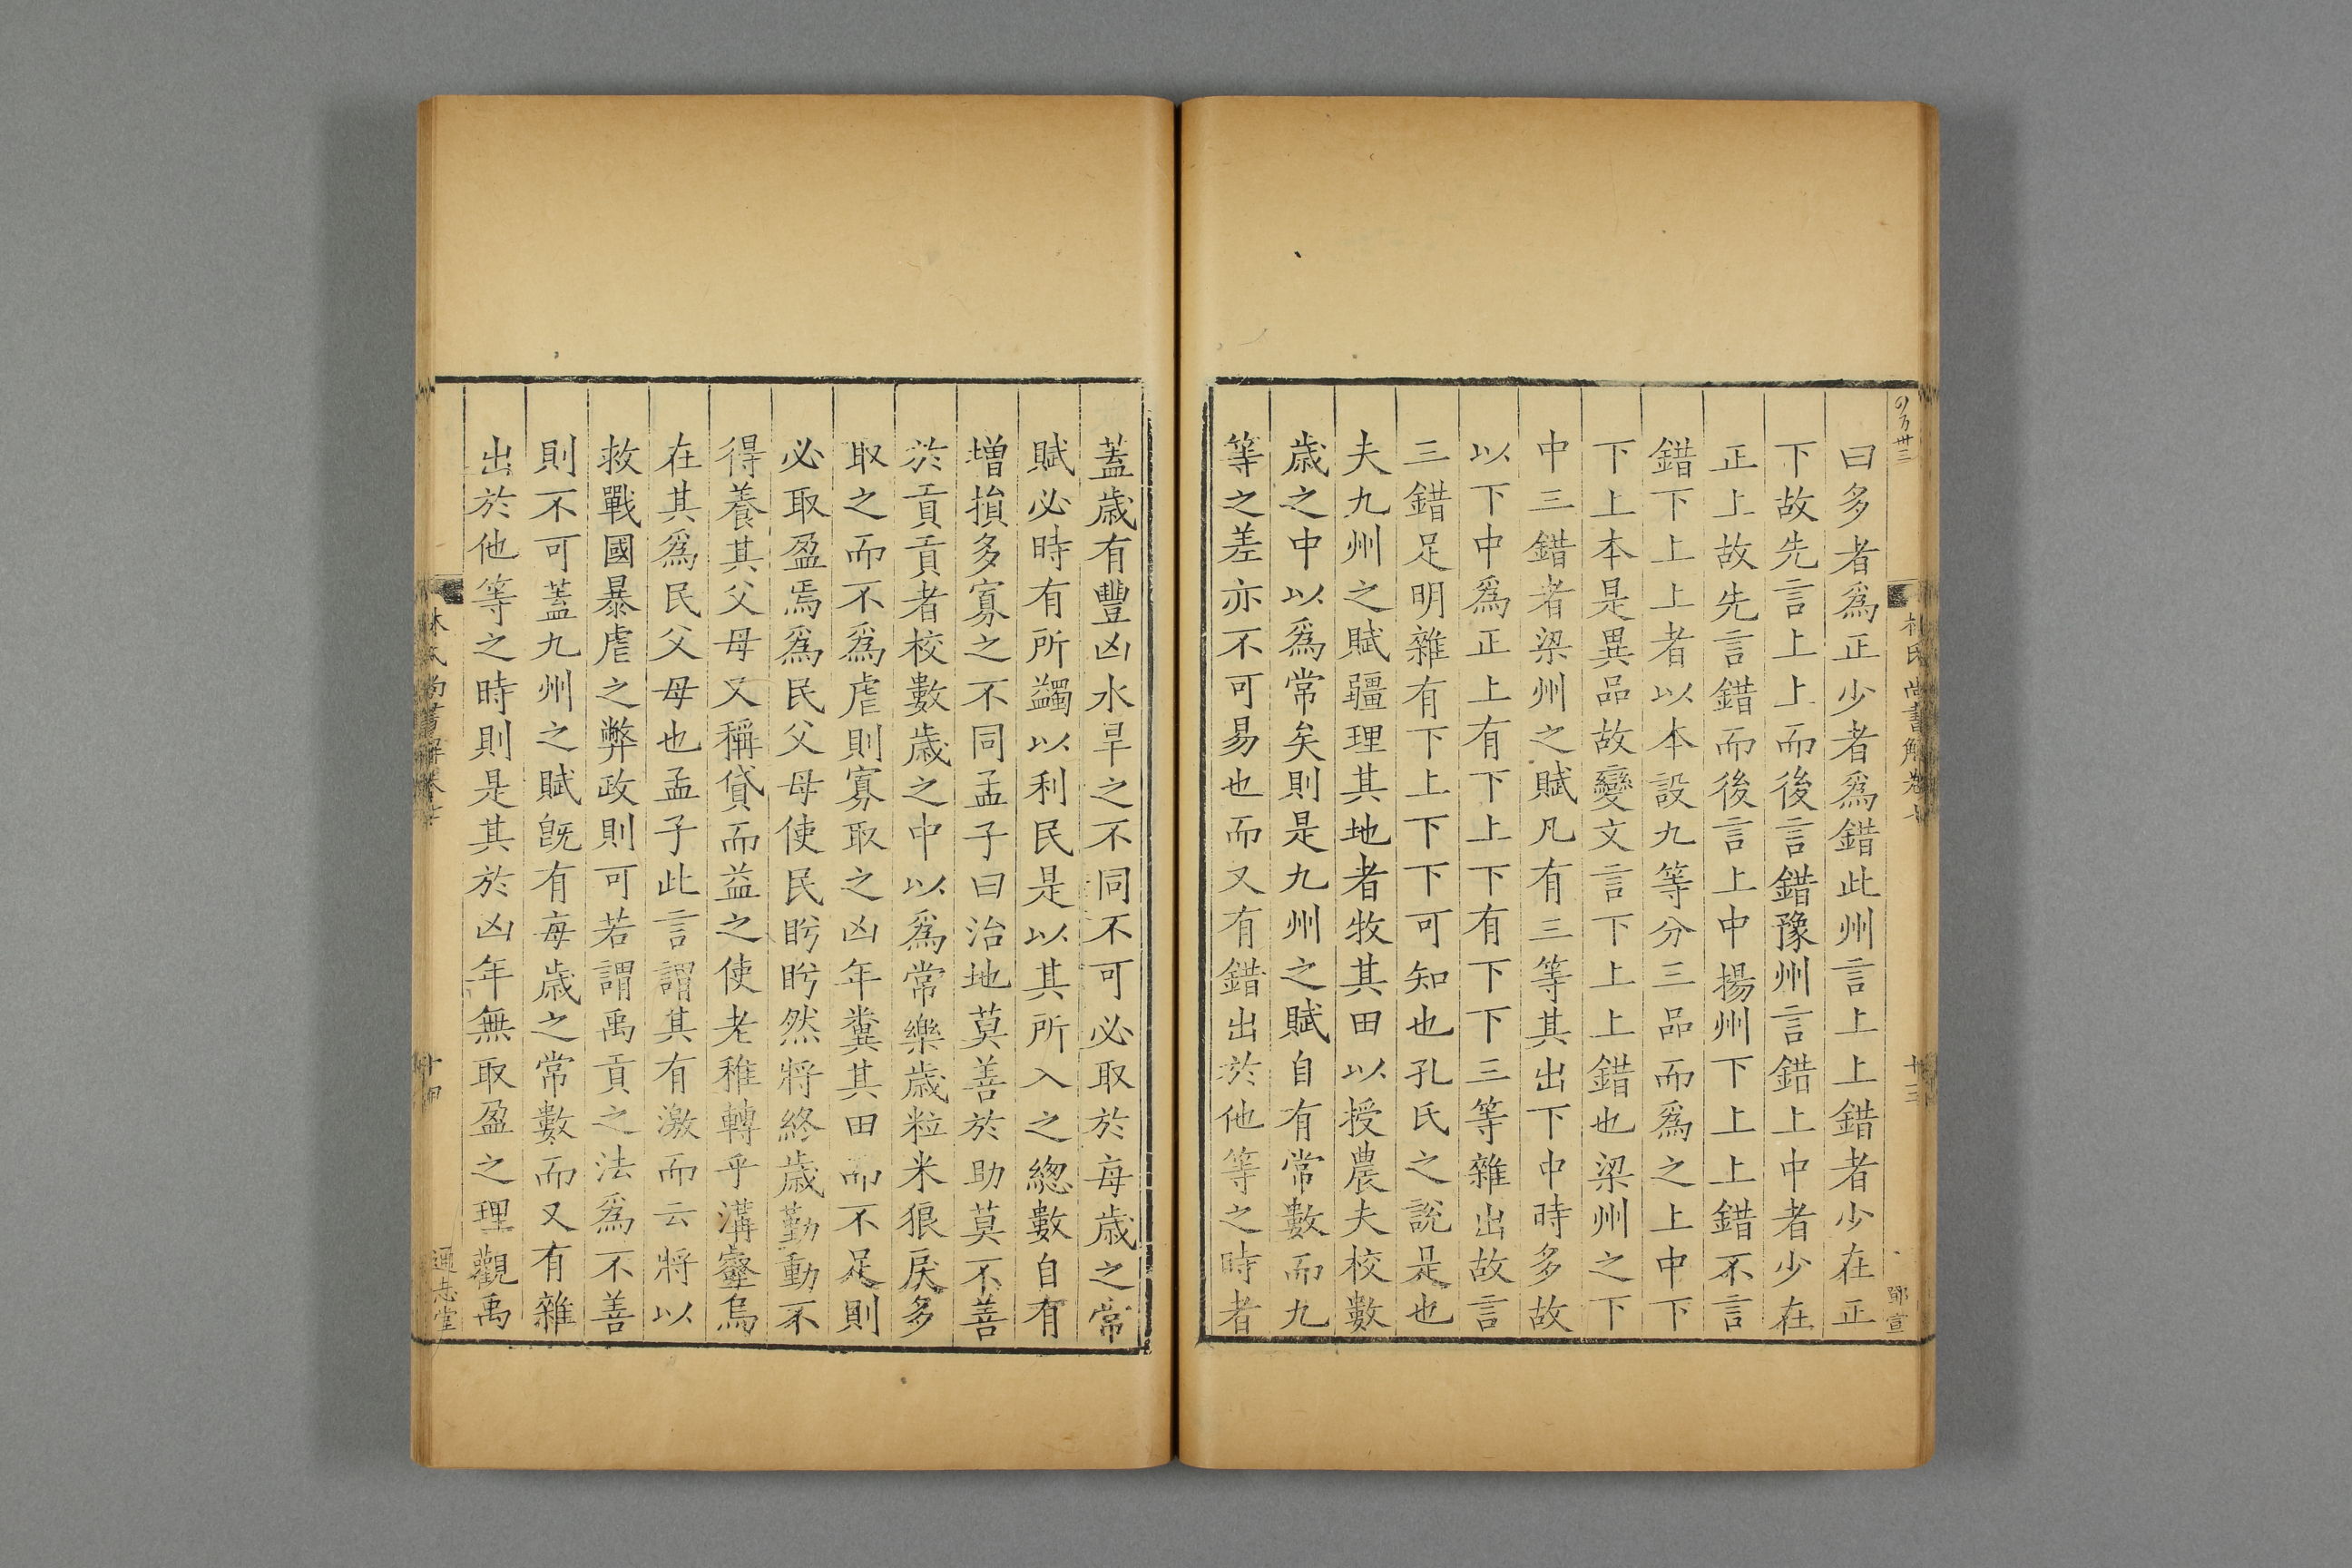 曰多者爲正少者爲錯此州言上上錯者少在正
下故先言上上而後言錯豫州言錯上中者少在
正上故先言錯而後言上中揚州下上上錯不言
錯下上上者以本設九等分三品而爲之上中下
下上本是異品故變文言下上上錯也梁州之下
中三錯者梁州之賦凡有三等其出下中時多故
以下中爲正上有下上下有下下三等雜出故言
三錯足明雜有下上下下可知也孔氏之說是也
夫九州之賦疆理其地者牧其田以授農夫校數
歲之中以爲常矣則是九州之賦自有常數而九
等之差亦不可易也而又有錯出於他等之時者
林氏尚書解卷七
十三
鄧宣
蓋歲有豐凶水旱之不同不可必取於每歲之常
賦必時有所蠲以利民是以其所入之總數自有
增損多寡之不同孟子曰治地莫善於助莫不善
於貢貢者校數歲之中以爲常樂歲粒米狼戾多
取之而不爲虐則寡取之凶年糞其田而不足則
必取盈焉爲民父母使民盻盻然將終歲勤動不
得養其父母又稱貸而益之使老稚轉乎溝壑烏
在其爲民父母也孟子此言謂其有激而云將以
救戰國暴虐之弊政則可若謂禹貢之法爲不善
則不可蓋九州之賦旣有每歲之常數而又有雜
出於他等之時則是其於凶年無取盈之理觀禹
林氏尚書解卷七
十四
通志堂